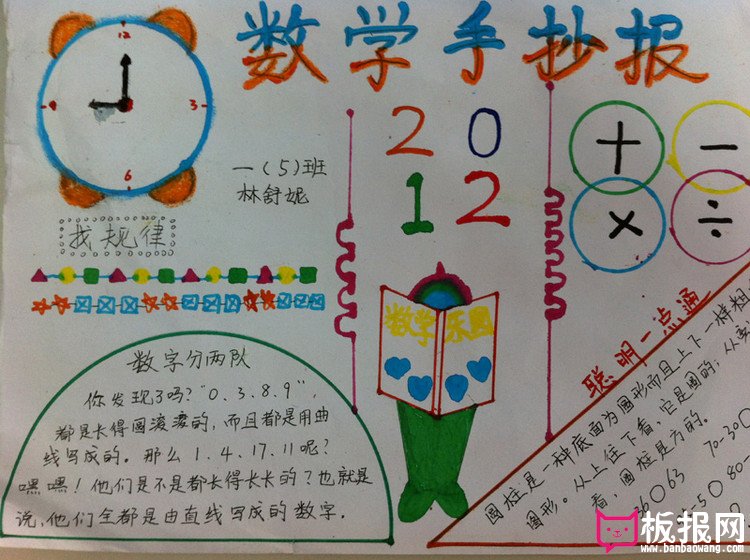 数学手抄报
12
9
3
6
一(5)班
林舒妮
2 0
1 2
+
-
×
÷
找规律
数学乐园
数字分两队
你发现了吗?“0.3.8.9”,
都是长得圆滚滚的,而且都是用曲
线写成的。那么1.4.17.11呢?
嘿嘿!他们是不是都长得长长的?也就是
说,他们全都是由直线写成的数字.
聪明一点通
圆柱是一种底面为圆形而且上下一样粗
图形。从上往下看,它是圆的;从
看,圆柱是方的。
36○63 70-30○
-5○80-
板报网
www.banbaowang.com